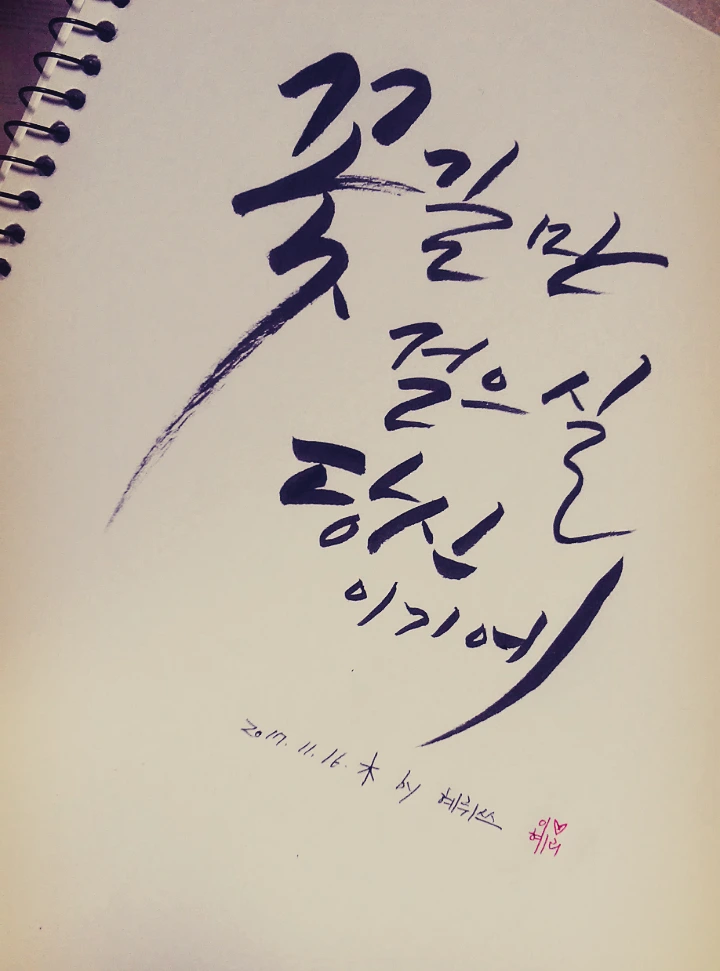 꽃길만
걸으실
당신
이기에
2017. 11. 16. 木 by 혜뤼쓰
이♡
혜리